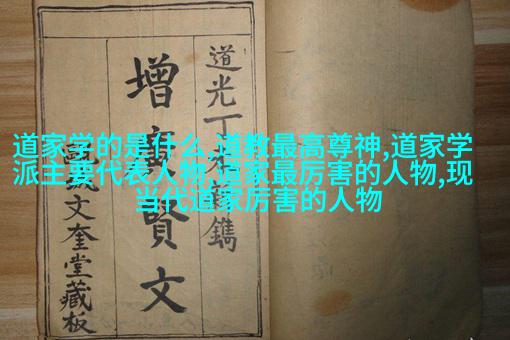 道家学的是什么,道教最高尊神,道家学
派主要代表人物,道家最厉害的人物,现
当代道家厉害的人物
道光丁鐫
增廣賢文
文奎堂藏板